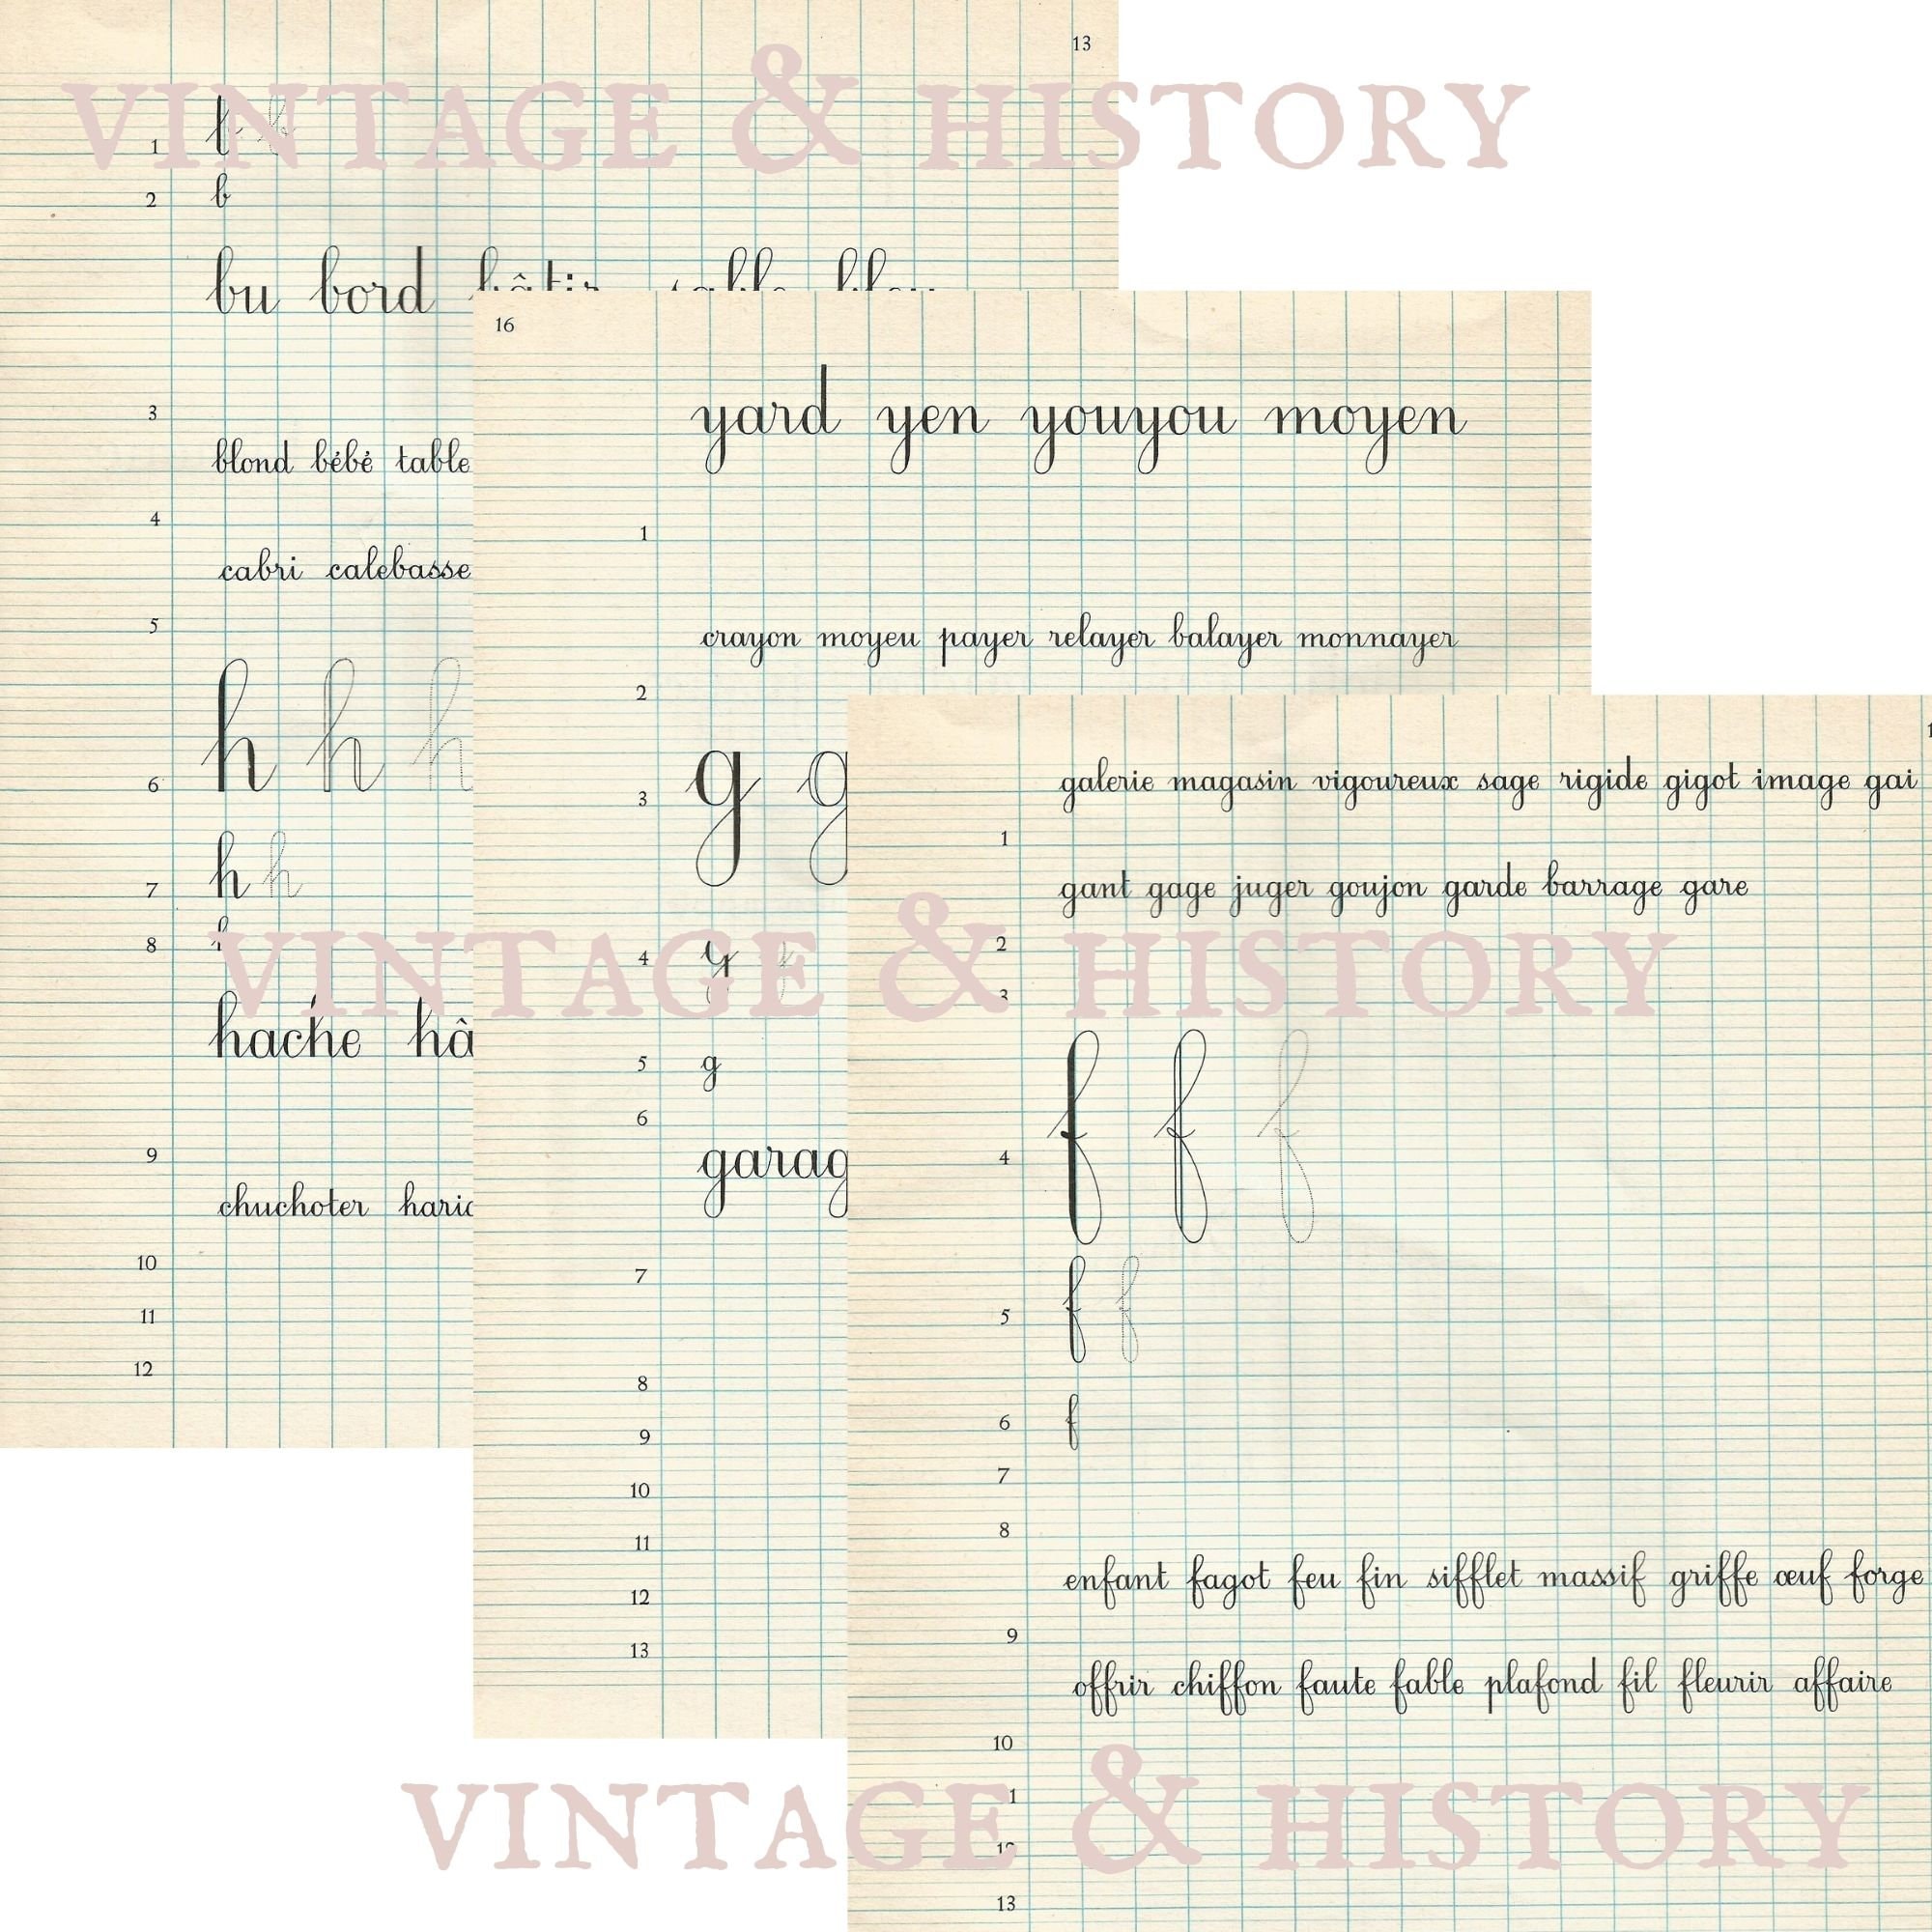 VINTAGE & HISTORY
13
1
b
2 b
bu bord bâtir table bleu
3
blond bébé table
4
cabri calebasse
5
h h h
6
h h
7
8
hache hâ
9
chuchoter haric
10
11
12
16
yard yen youyou moyen
1
crayon moyeu payer relayer balayer monnayer
2
g g
3
4 g
5 g
6
garag
7
8
9
10
11
12
13
galerie magasin vigoureux sage rigide gigot image gai
1
gant gage juger goujon garde barrage gare
2
VINTAGE & HISTORY
3
f f f
4
f f
5
6 f
7
8
enfant fagot feu fin sifflet massif griffe œuf forge
9
offrir chiffon faute fable plafond fil fleurir affaire
10
VINTAGE & HISTORY
13